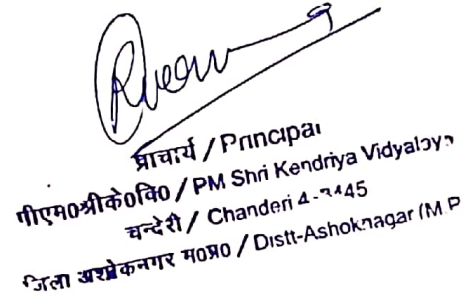 प्राचार्य / Principal
पीएम०श्रीके०वि० / PM Shri Kendriya Vidyalaya
चन्देरी / Chanderi
जिला अशोकनगर म०प्र० / Distt-Ashoknagar (M.P